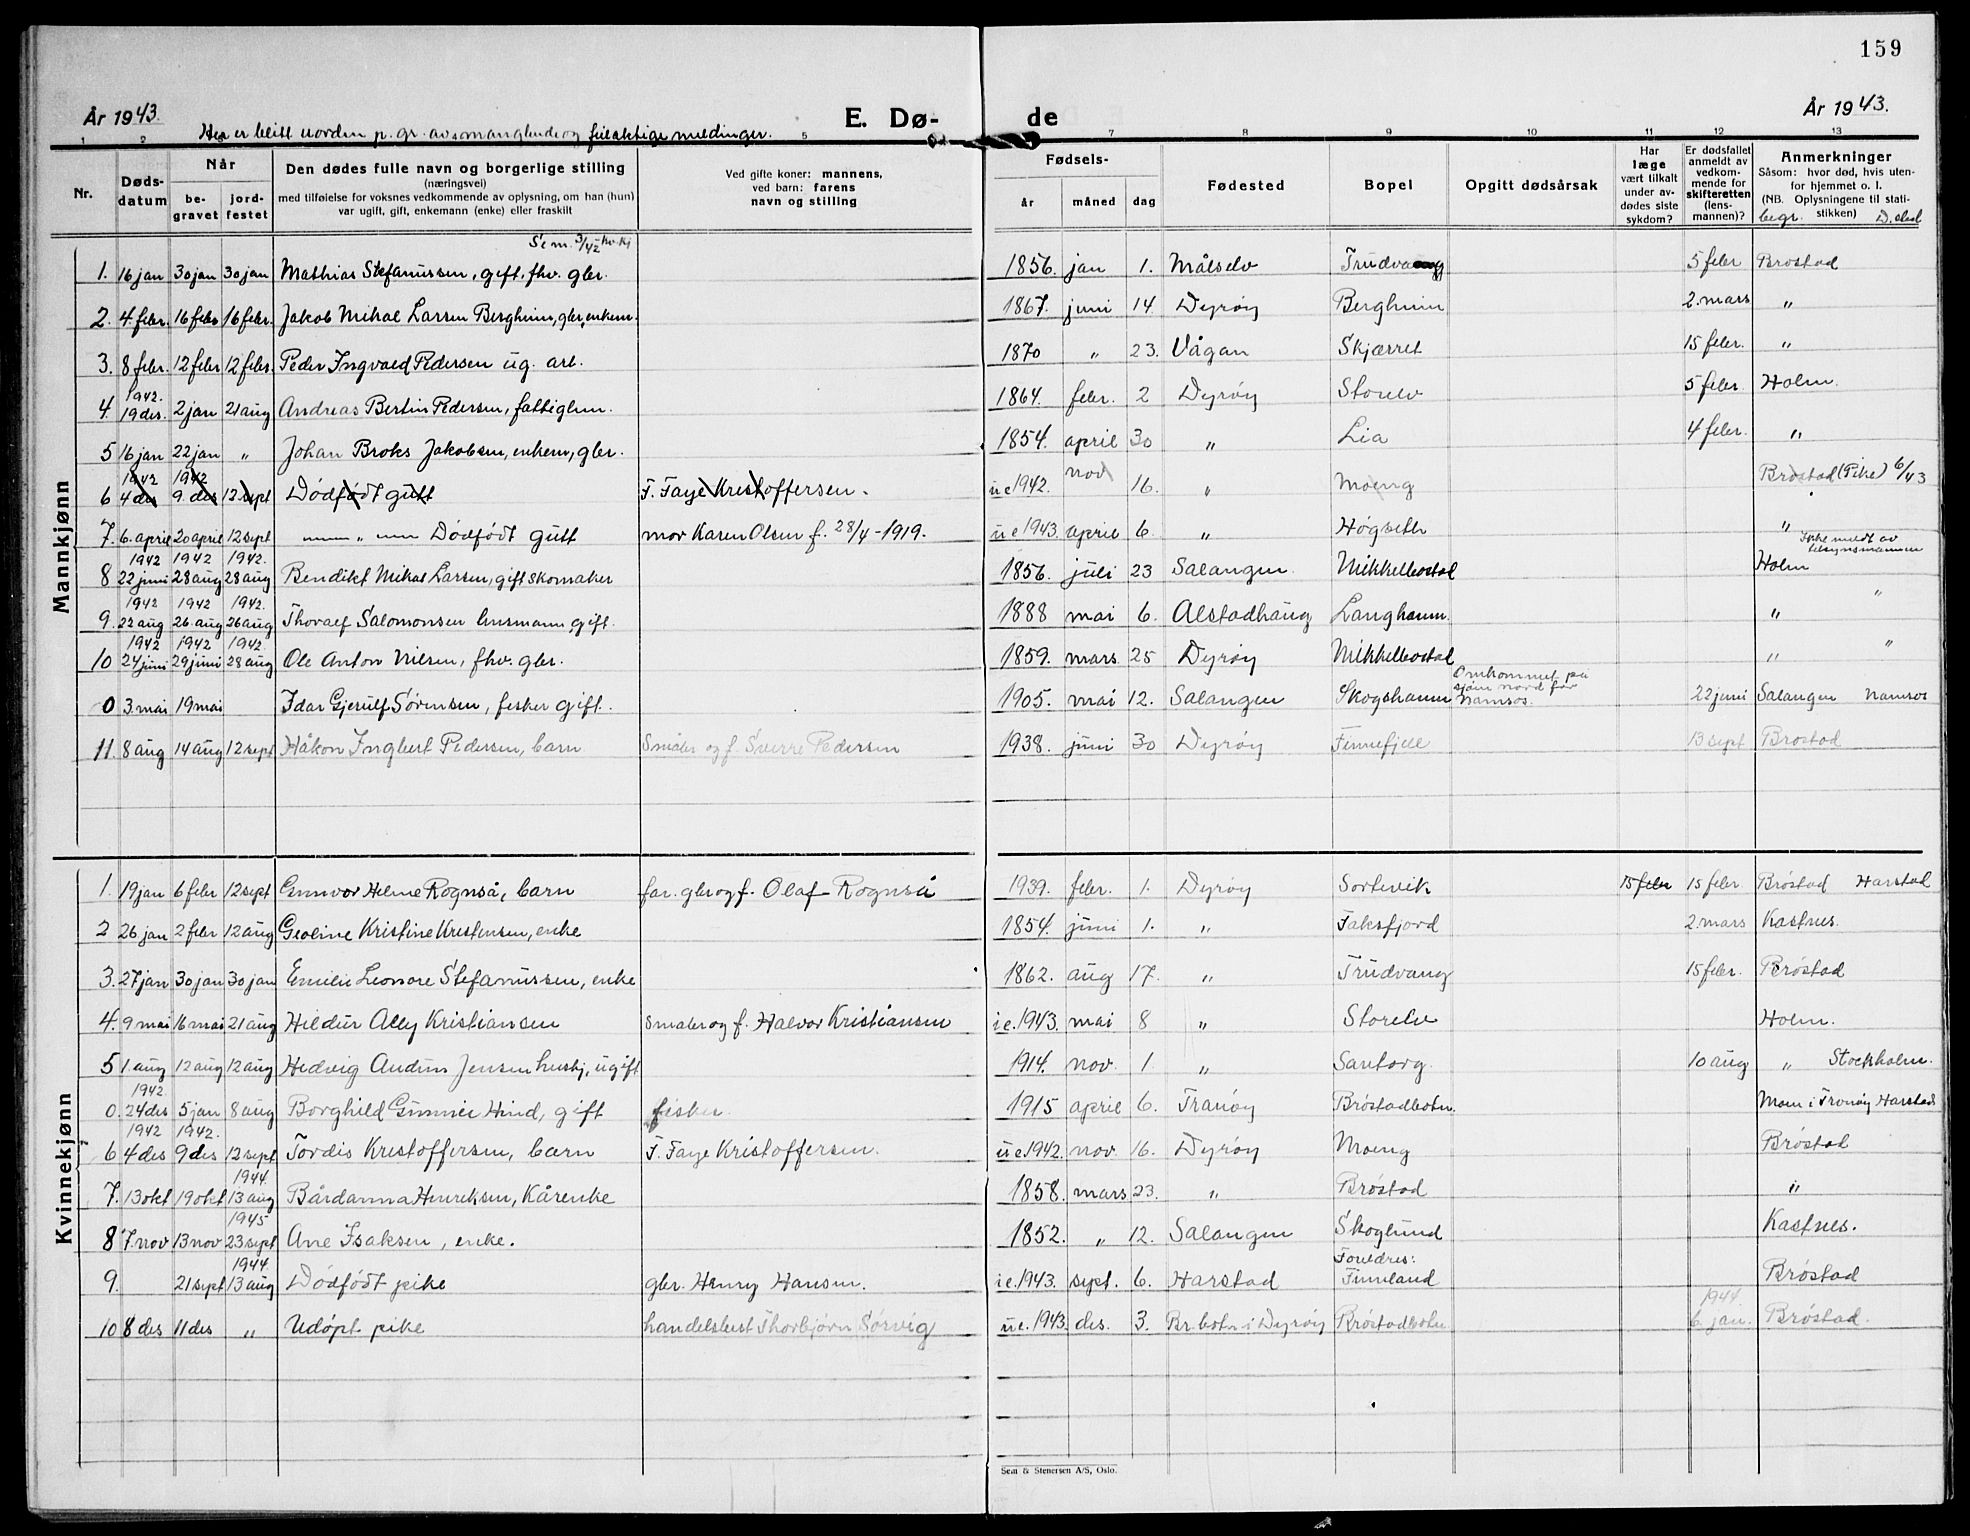 159
År 1943.
E. Dø- de
År 1943.
Her er blitt uorden p. gr. av manglende og feilaktige meldinger.
1 2 5 7 8 9 10 11 12 13
Nr. Døds-datum Når be-gravet jord-festet
Den dødes fulle navn og borgerlige stilling
(næringsvei)
med tilføielse for voksnes vedkommende av oplysning, om han (hun)
var ugift, gift, enkemann (enke) eller fraskilt
Ved gifte koner: mannens,
ved barn: farens
navn og stilling
Fødsels-
år måned dag
Fødested Bopel Opgitt dødsårsak
Har læge vært tilkalt under av-dødes siste sykdom?
Er dødsfallet anmeldt av vedkom-mende for skifteretten (lens-mannen)?
Anmerkninger
Såsom: hvor død, hvis uten-
for hjemmet o. l.
(NB. Oplysningene til stati-
stikken)
begr. D.sted
Mannkjønn
1. 16 jan 30 jan 30 jan Mathias Stefanussen, gift, fhv. gbr. 1856. jan 1. Målselv Trudvang 5 febr Brøstad
2. 4. febr. 16 febr 16 febr. Jakob Mikal Larsen Bergheim, gbr, enkem. 1867. juni 14 Dyrøy Bergheim 2. mars "
3. 8 febr. 12 febr 12 febr. Peder Ingvald Pedersen ug. arb. 1870 " 23. Vågan Skjærret 15 febr. "
1942.
4. 19 des. 2 jan 21 aug Andreas Bertin Pedersen, fattiglem. 1864. febr. 2 Dyrøy Storelv 5 febr Holm.
5 16 jan 22 jan " Johan Broks Jakobsen, enkem, gbr. 1854. april 30 " Lia 4 febr. "
1942 1942
6 4 des 9. des 12 sept Dødfødt gutt F. Faye Kristoffersen. ue 1942. nov 16. " Moeng Brøstad (Pike) 6/43
7. 6. april 20 april 12 sept — " — Dødfødt gutt mor Karen Olsen f. 28/4 - 1919. ue 1943. april 6. " Høgseth "
1942 1942 1942. Ikke meldt av tilsynsmannen
8 22 juni 28 aug 28 aug Bendikt Mikal Larsen, gift skomaker 1856. juli 23 Salangen Mikkelbostad Holm
1942 1942 1942. "
9. 22 aug 26. aug 26 aug Thoralf Salomonsen husmann, gift. 1888 mai 6. Alstadhaug Langhamn. "
1942 1942 1942.
10 24 juni 29 juni 28 aug Ole Anton Nilsen, fhv. gbr. 1859. mars 25 Dyrøy Mikkelbostad " "
0 3. mai 19 mai Idar Gjerulf Sørensen, fisker gift. 1905. mai 12. Salangen Skogshamn Omkommet på sjøen nord for Namsos. 22 juni Salangen Namsos
11. 8 aug 14 aug 12 sept Håkon Ingbert Pedersen, barn Småbr og f. Sverre Pedersen 1938. juni 30 Dyrøy Finnefjell 13 sept Brøstad
Kvinnekjønn
1. 19 jan 6 febr 12 sept Gunvor Helene Rognså, barn far. gbr og f. Olaf Rognså 1939. febr. 1. Dyrøy Sørtevik 15 febr 15 febr Brøstad Harstad
2 26 jan 2 febr 12 aug Geoline Kristine Kristensen, enke 1854. juni 1. " Faksfjord 2. mars Kastnes.
3. 27 jan 30 jan 30 jan Emelie Leonore Stefanussen, enke 1862. aug 17. " Trudvang 15 febr. Brøstad
4. 9 mai 16 mai 21 aug Hildur Ally Kristiansen småbr og f. Halvor Kristiansen ie. 1943. mai 8 " Storelv Holm.
5 1. aug 12 aug 12 aug Hedvig Audun Jensen hushj, ugift 1914. nov. 1. " Santorg. 10 aug " Stockholm.
1942.
0. 24 des 5 jan 8 aug Borghild Gunnie Hind, gift fisker 1915 april 6. Tranøy Brøstadbotn. Moen i Tranøy Harstad
1942 1942.
6 4 des 9 des 12 sept Tordis Kristoffersen, barn F. Faye Kristoffersen. ue 1942. nov. 16. Dyrøy Moeng Brøstad
1944.
7. 13 okt 19 okt 13 aug Bårdanna Henriksen, Kårenke 1858. mars 23. " Brøstad "
1945
8 7. nov 13 nov 23 sept Ane Isaksen, enke. 1852. " 12. Salangen Skoglund Kastnes.
1944. Foreldres:
9. 21 sept 13 aug Dødfødt pike gbr. Henry Hansen. ie. 1943. sept. 6. Harstad Finnland Brøstad
1944
10 8 des 11 des " Udøpt pike handelsbest Thorbjørn Sørvig ue. 1943. des. 3. Br.botn i Dyrøy Brøstadbotn 6 jan. Brøstad.
Sem & Stenersen A/S, Oslo.